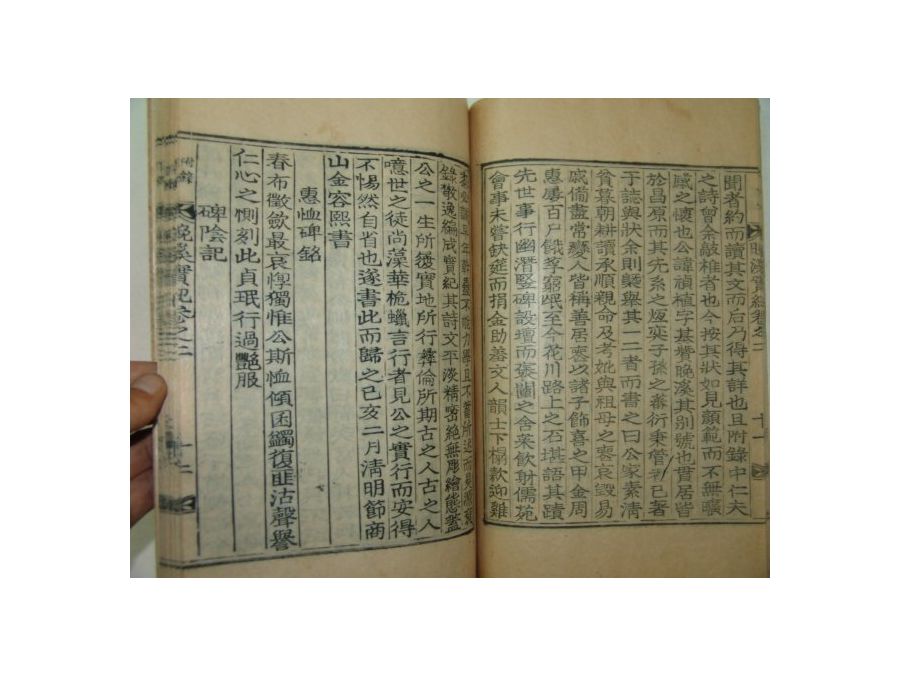 晩溪實紀卷之二 十一
聞者約而讀其文而后乃得其詳也且附錄中仁夫
之詩賀余敲椎者也今按其狀如見顔範而不無曠
感之懷也公諱禎植字基贊晚溪其别號也貫居皆
於昌原而其先系之烜奕子孫之蕃衍秉管者已著
于誌與狀余則槩舉其一二者而書之曰公家素清
貧暮朝耕讀承順親命及考妣與祖母之喪哀毁易
戚備盡常慶人皆稱善居喪以諸子飾喜之甲金周
惠屢百戶餓莩窮氓至今花川路上之石堪語其蹟
先世事行幽潛竪碑設壇而褒闡之舍菜飮射儒苑
會事未嘗缺筵而捐金助善文人韻士下榻欵迎雖
早年不能力學且不所述而
錄散逸編成實紀其詩文平淡精密絶無彫繪態盖
公之一生所履實地所行彝倫所期古之人古之人
噫世之徒尚藻華梔蠟言行者見公之實行而安得
不惕然自省也遂書此而歸之己亥二月淸明節商
山金容熙書
惠恤碑銘
春布徵斂最哀惸獨惟公斯恤傾囷蠲復匪沽聲譽
仁心之惻刻此貞珉行過艶服
碑陰記
附錄
晚溪實紀卷之二 十二